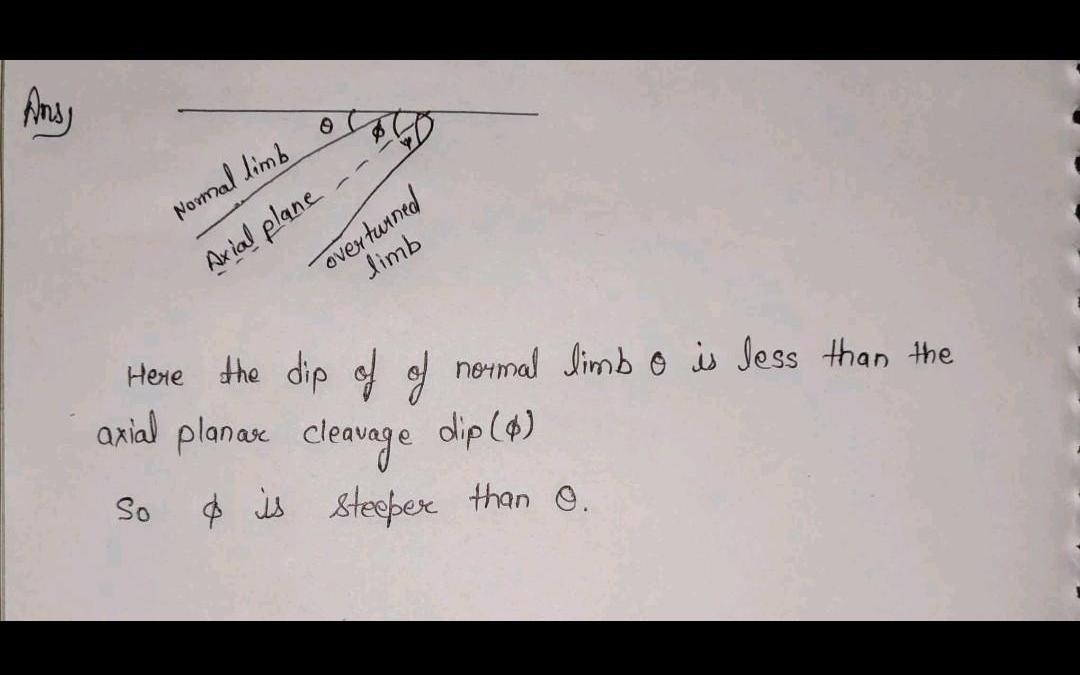 Ans,
θ
ϕ
ψ
Normal limb
Axial plane
overturned
limb
Here the dip of of normal limb θ is less than the
axial planar cleavage dip (ϕ)
So ϕ is steeper than θ.